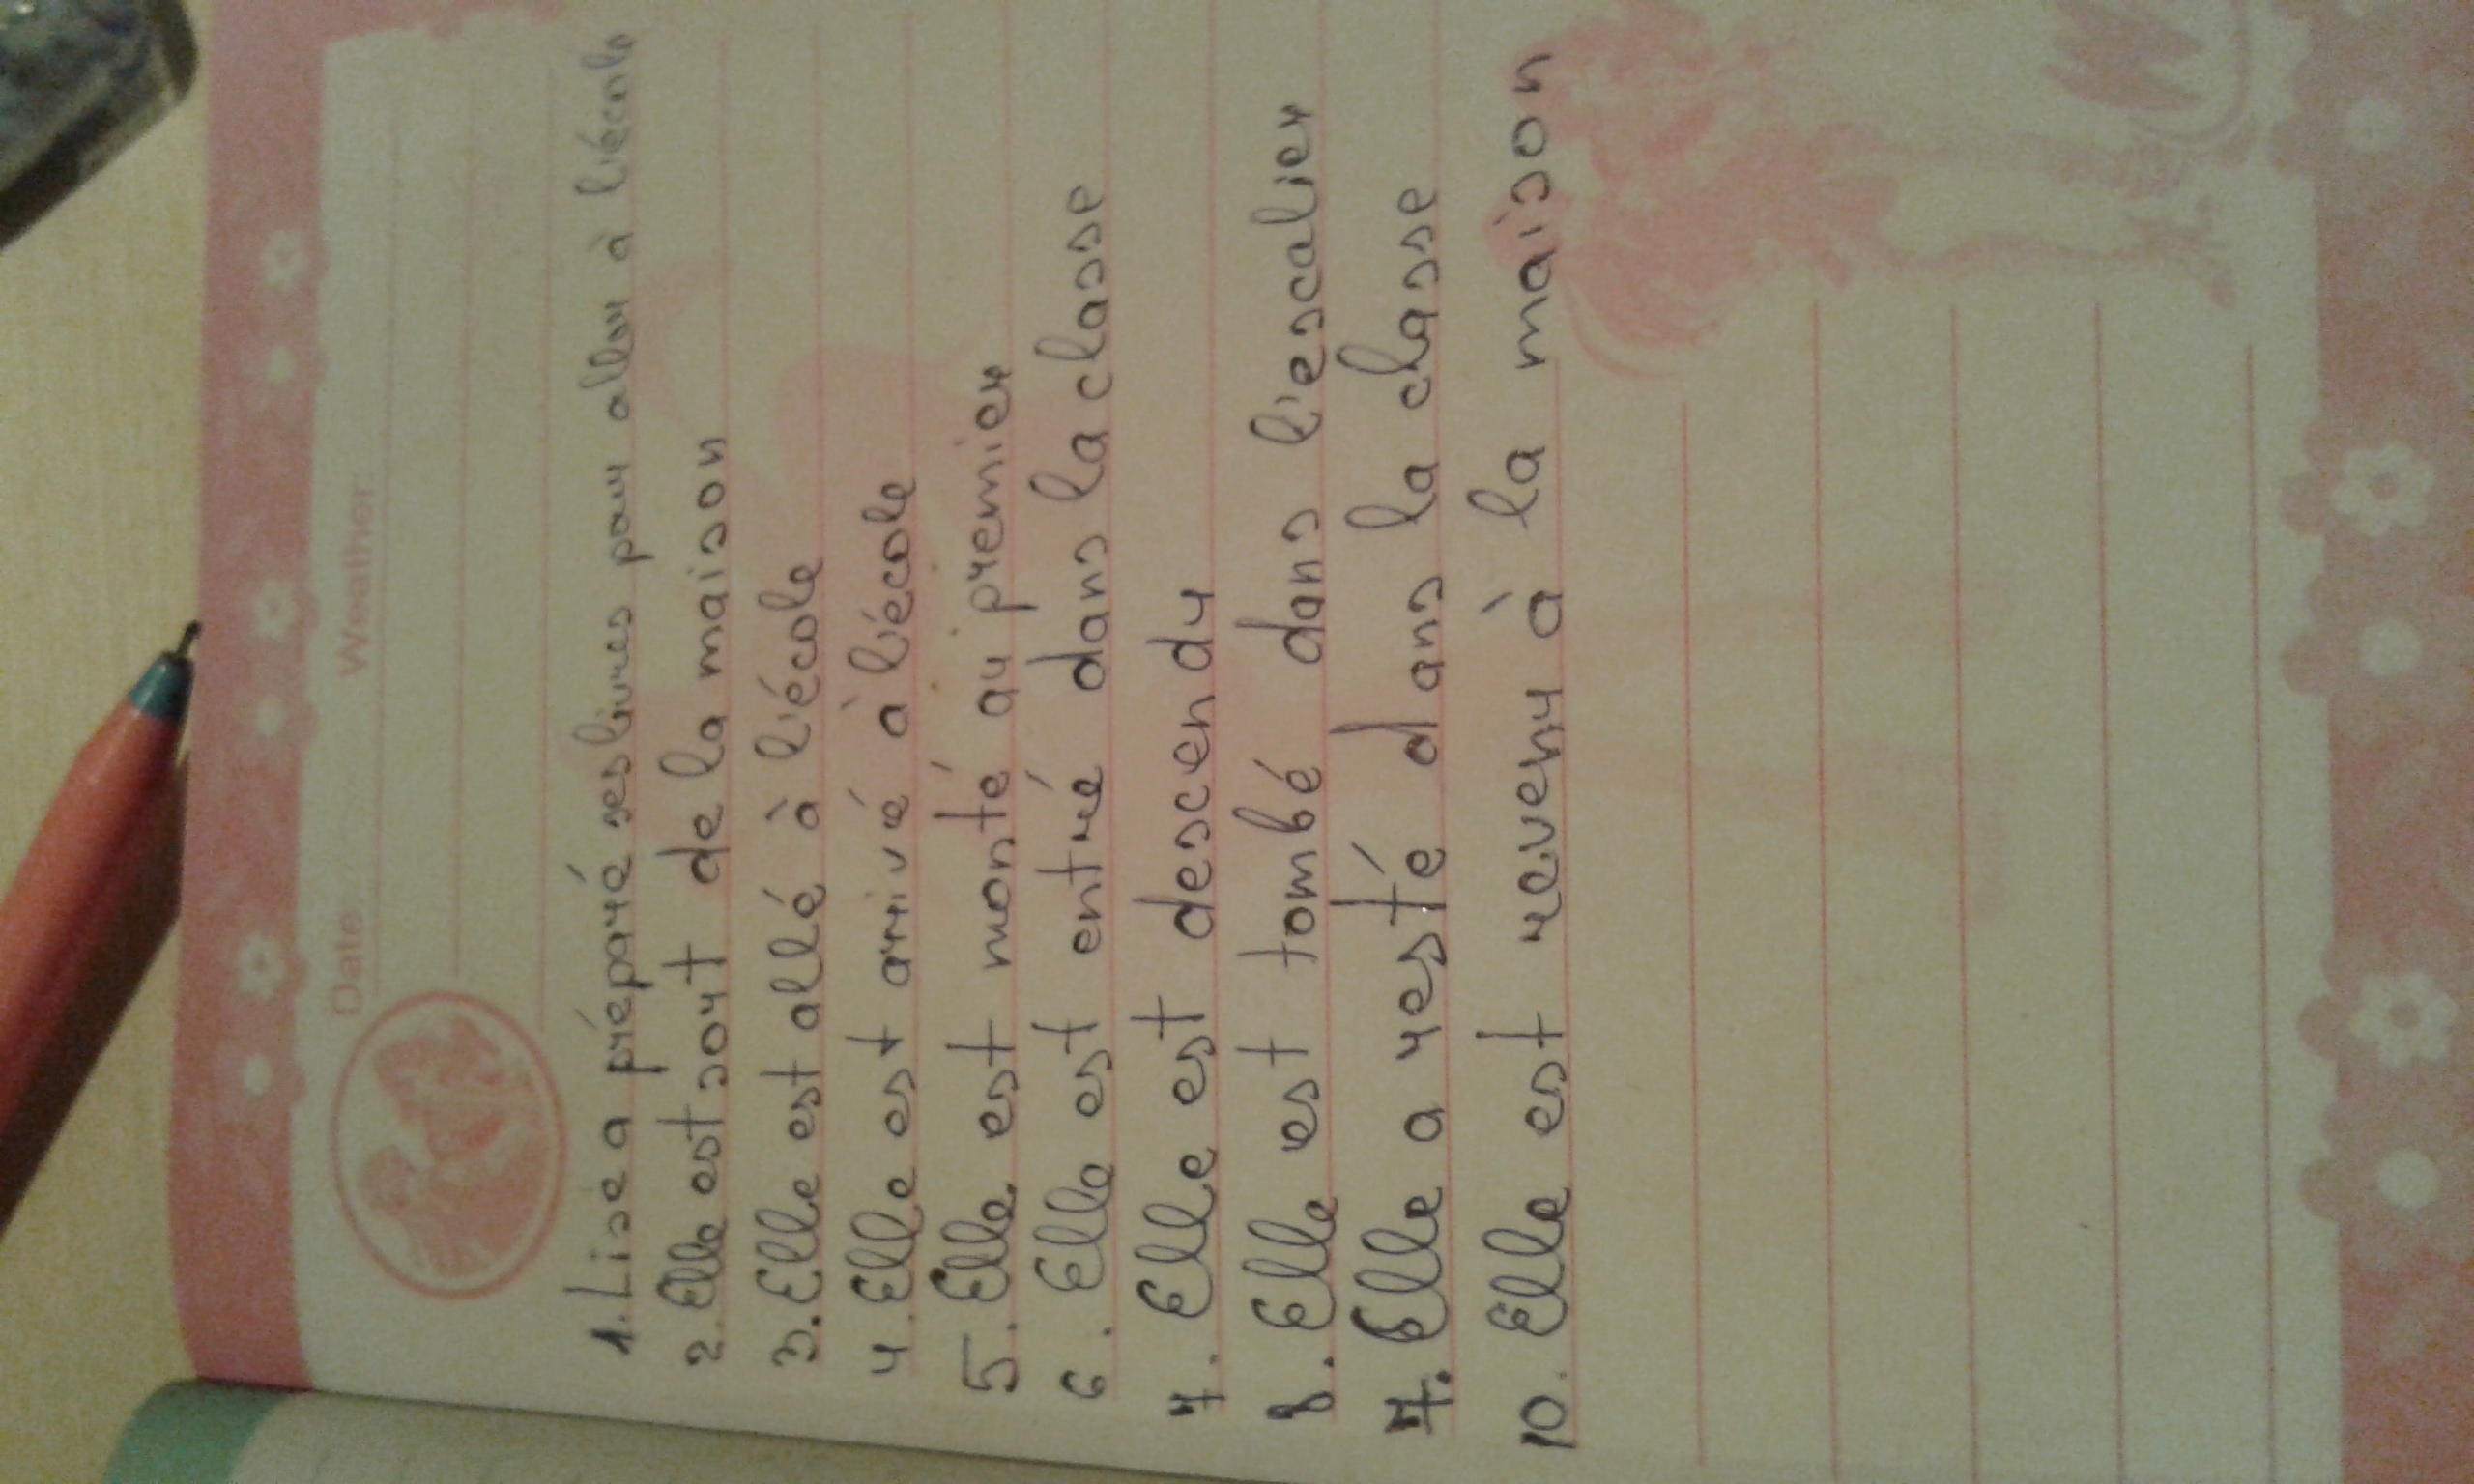 Date:
Weather:
1. Lise a préparé ses livres pour aller à l'école
2. Elle est sort de la maison
3. Elle est allé à l'école
4. Elle est arrivé à l'école
5. Elle est monté au premier
6. Elle est entré dans la classe
7. Elle est descendu
8. Elle est tombé dans l'escalier
7. Elle a resté dans la chasse
10. Elle est revenu à la maison